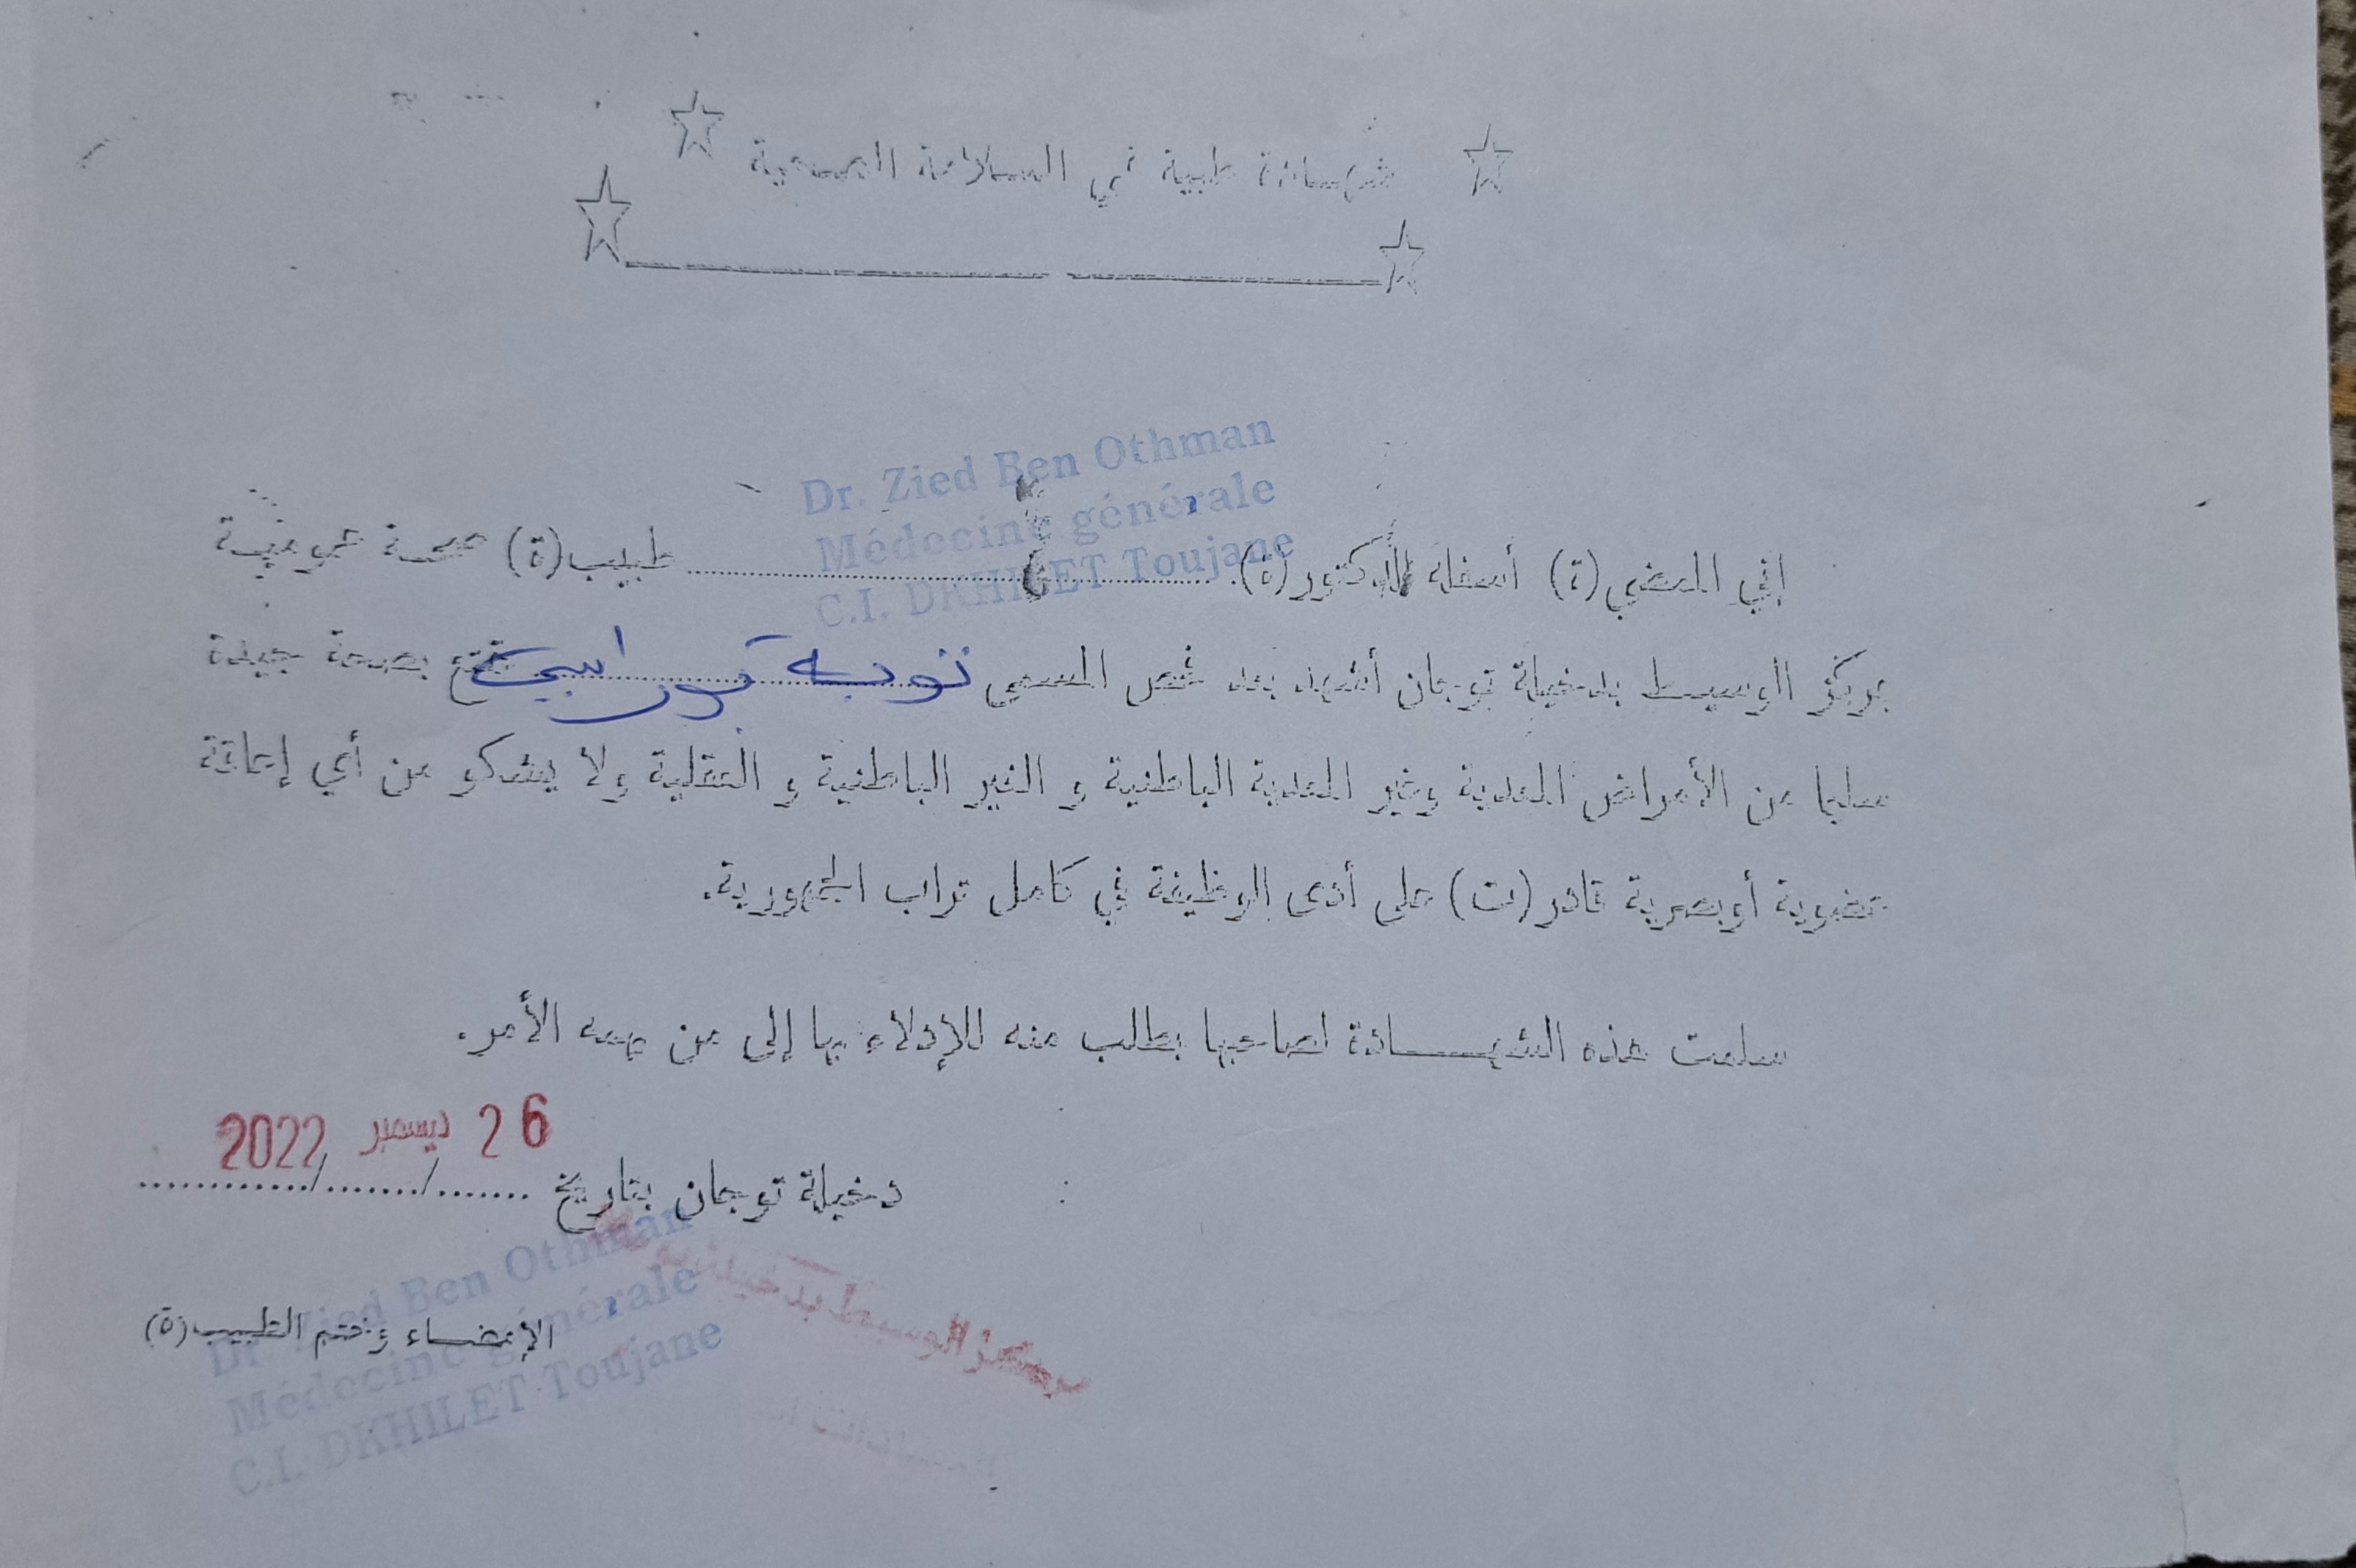 شهادة طبية في السلامة الصحية
Dr. Zied Ben Othman
Médecine générale
C.I. DKHILET Toujane
إني الممضي(ة) أسفله الدكتور(ة) ........................ طبيب(ة) صحة عمومية
بمركز الوسيط بدخيلة توجان أشهد بعد فحص المسمى توبة يتمتع بصحة جيدة
سليما من الأمراض المعدية وغير المعدية الباطنية و الغير الباطنية و العقلية ولا يشكو من أي إعاقة
عضوية أوبصرية قادر(ت) على أدى الوظيفة في كامل تراب الجمهورية.
سلمت هذه الشهادة لصاحبها بطلب منه للإدلاء بها إلى من يهمه الأمر.
26 ديسمبر 2022
دخيلة توجان بتاريخ ......./......./............
مركز الوسيط بدخيلة
الإمضاء وختم الطبيب(ة)
Dr. Zied Ben Othman
Médecine générale
C.I. DKHILET Toujane